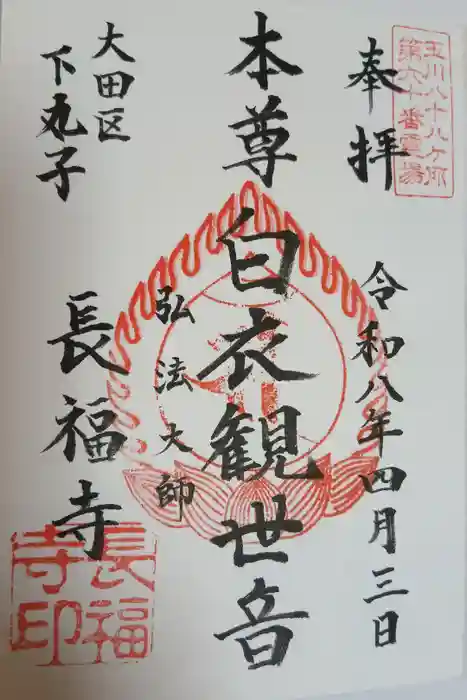 玉川八十八ヶ所
第六十番霊場
奉拝
令和八年四月三日
本尊
白衣観世音
弘法大師
大田区
下丸子
長福寺
長福
寺印